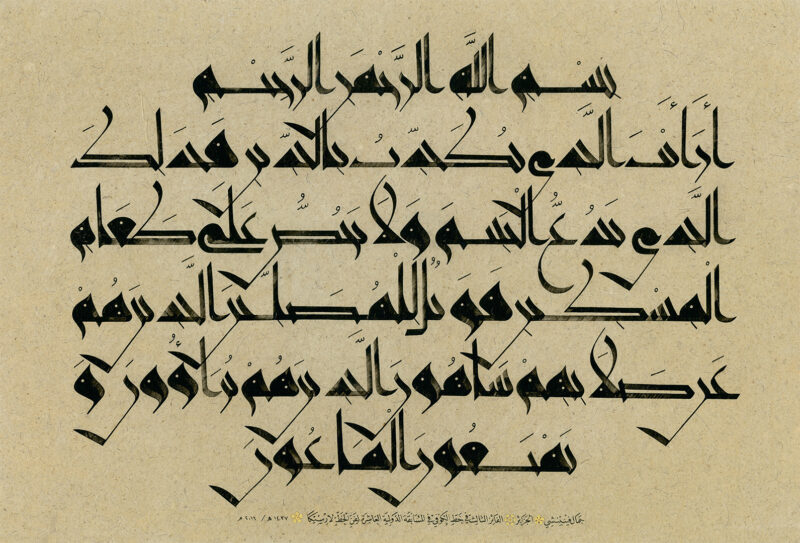 بسم الله الرحمن الرحيم
أرأيت الذي يكذب بالدين فذلك
الذي يدع اليتيم ولا يحض على طعام
المسكين فويل للمصلين الذين هم
عن صلاتهم ساهون الذين هم يراؤون و
يمنعون الماعون
جمال الجزائر الفائز الثالث في خط الكوفي في المسابقة الدولية العاشرة لفن الخط لإرسيكا ١٤٣٧ هـ / ٢٠١٦ م